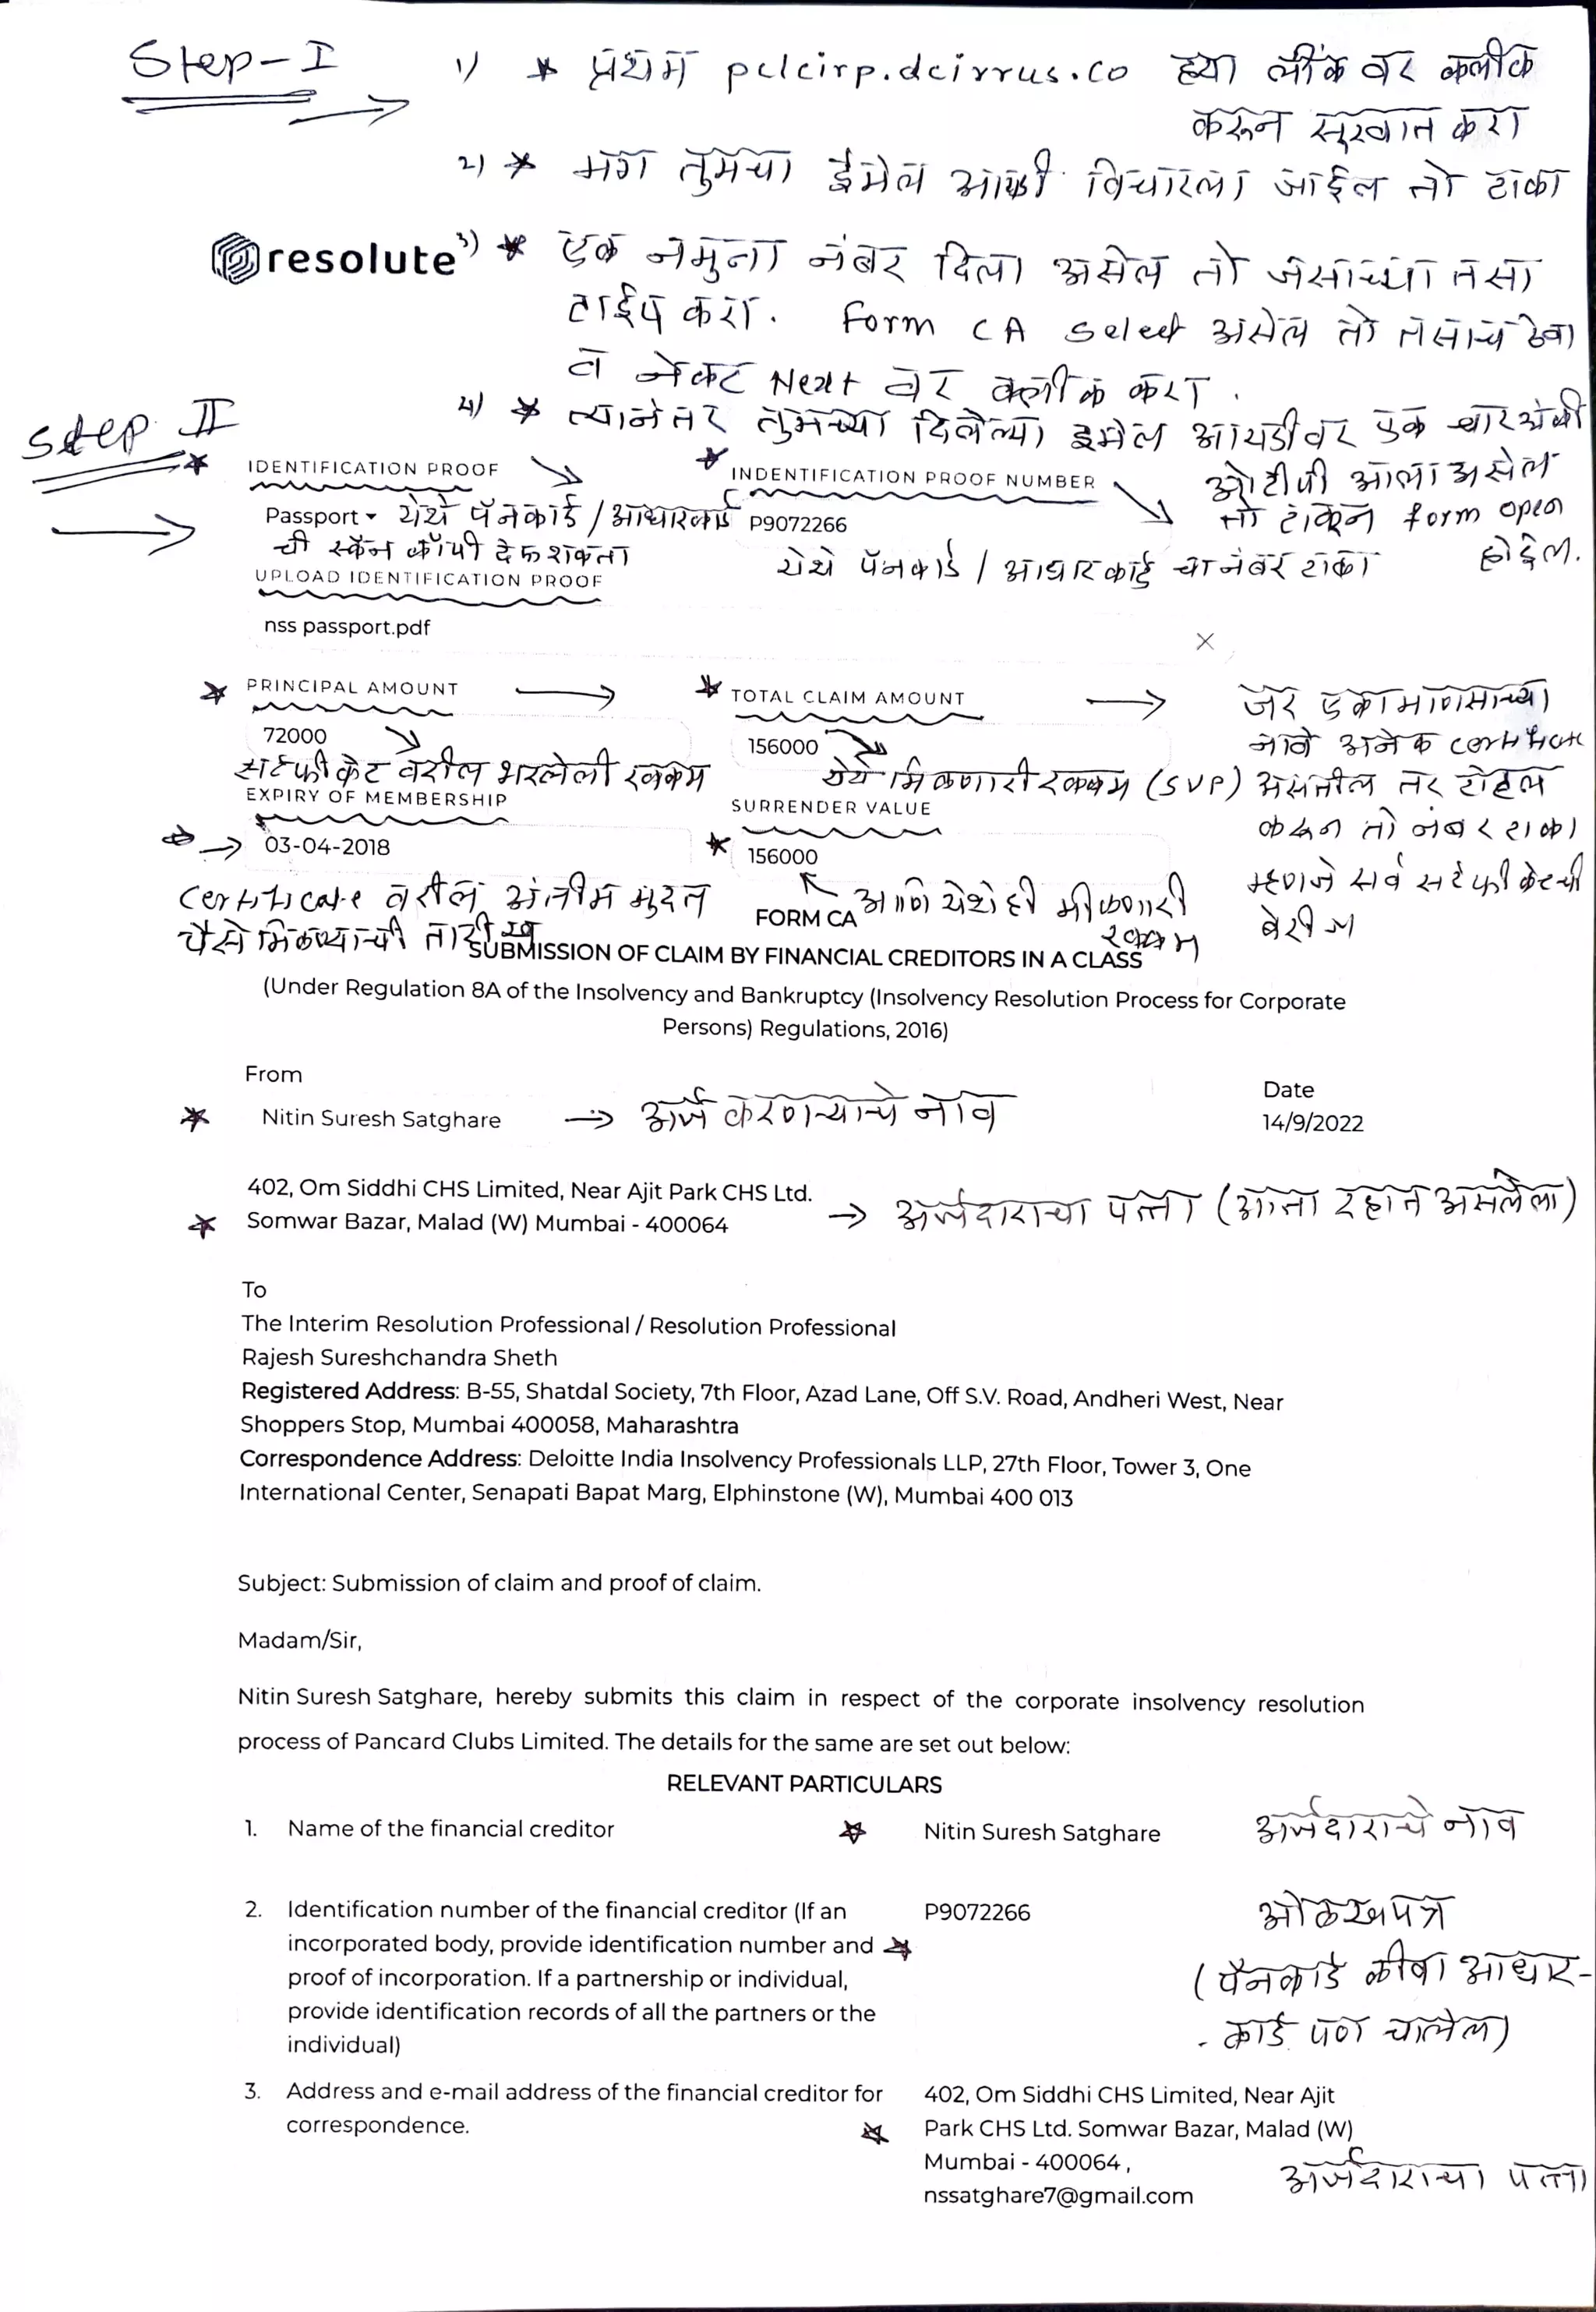 Step-I
1) * प्रथम pclcirp.dcirrus.co ह्या लींक वर क्लीक
करून सुरवात करा
2) * मग तुमचा ईमेल आयडी विचारला जाईल तो टाका
resolute
3) * एक नमुना नंबर दिला असेल तो जसाच्या तसा
टाईप करा. Form CA select असेल तो तसाच ठेवा
व नेक्ट Next वर क्लीक करा.
4) * त्यानंतर तुमच्या दिलेल्या इमेल आयडीवर एक चार अंकी
ओटीपी आला असेल
तो टाकून form open
होईल.
Step II
IDENTIFICATION PROOF
INDENTIFICATION PROOF NUMBER
Passport येथे पॅनकार्ड / आधारकार्ड
P9072266
ची स्कॅन कॉपी देऊ शकता
येथे पॅनकार्ड / आधारकार्ड चा नंबर टाका
UPLOAD IDENTIFICATION PROOF
nss passport.pdf
PRINCIPAL AMOUNT
TOTAL CLAIM AMOUNT
जर एका माणसाच्या
72000
156000
नावे अनेक certificate
सर्टफीकेट वरील भरलेली रक्कम
येथे मिळणारी रक्कम (SVP)
असतील तर टोटल
EXPIRY OF MEMBERSHIP
SURRENDER VALUE
करून तो नंबर टाका
03-04-2018
156000
म्हणजे सर्व सर्टफीकेटची
बेरीज
certificate वरील अंतीम मुदत
आणि येथे ही मीळणारी
रक्कम
पैसे मिळण्याची तारीख
FORM CA
SUBMISSION OF CLAIM BY FINANCIAL CREDITORS IN A CLASS
(Under Regulation 8A of the Insolvency and Bankruptcy (Insolvency Resolution Process for Corporate
Persons) Regulations, 2016)
From
Date
Nitin Suresh Satghare → अर्ज करणाऱ्याचे नाव
14/9/2022
402, Om Siddhi CHS Limited, Near Ajit Park CHS Ltd.
Somwar Bazar, Malad (W) Mumbai - 400064
→ अर्जदाराचा पत्ता (आता रहात असलेला)
To
The Interim Resolution Professional / Resolution Professional
Rajesh Sureshchandra Sheth
Registered Address: B-55, Shatdal Society, 7th Floor, Azad Lane, Off S.V. Road, Andheri West, Near
Shoppers Stop, Mumbai 400058, Maharashtra
Correspondence Address: Deloitte India Insolvency Professionals LLP, 27th Floor, Tower 3, One
International Center, Senapati Bapat Marg, Elphinstone (W), Mumbai 400 013
Subject: Submission of claim and proof of claim.
Madam/Sir,
Nitin Suresh Satghare, hereby submits this claim in respect of the corporate insolvency resolution
process of Pancard Clubs Limited. The details for the same are set out below:
RELEVANT PARTICULARS
1. Name of the financial creditor
Nitin Suresh Satghare
अर्जदाराचे नाव
2. Identification number of the financial creditor (If an
incorporated body, provide identification number and
proof of incorporation. If a partnership or individual,
provide identification records of all the partners or the
individual)
P9072266
ओळखपत्र
(पॅनकार्ड कींवा आधार-
- कार्ड पण चालेल)
3. Address and e-mail address of the financial creditor for
correspondence.
402, Om Siddhi CHS Limited, Near Ajit
Park CHS Ltd. Somwar Bazar, Malad (W)
Mumbai - 400064 ,
nssatghare7@gmail.com
अर्जदाराचा पत्ता